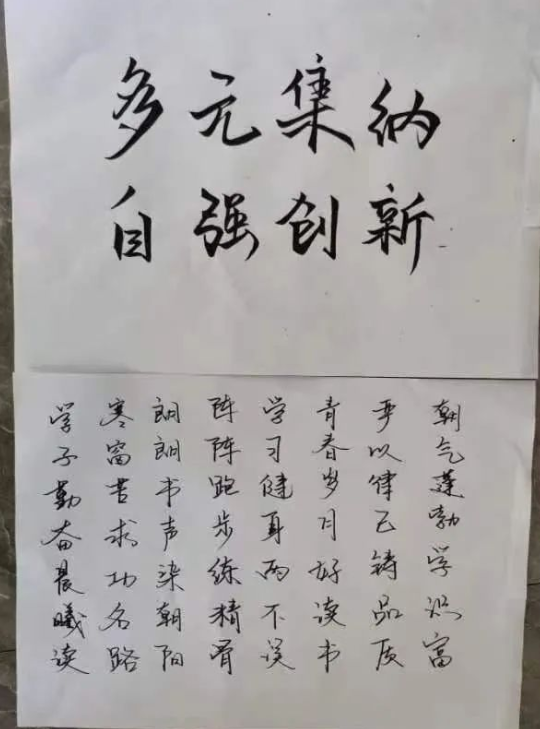 多元集纳
自强创新
学子勤奋晨曦读
寒窗苦求功名路
朗朗书声染朝阳
阵阵跑步练精骨
学习健身两不误
青春岁月好读书
严以律己铸品质
朝气蓬勃学识富